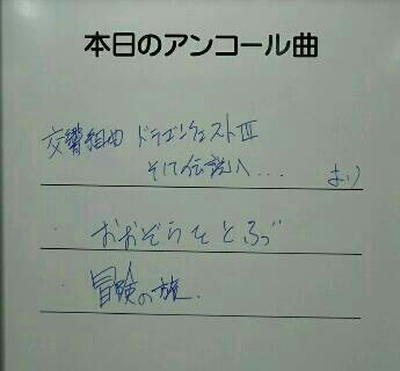 本日のアンコール曲
交響組曲 ドラゴンクエストⅢ
そして伝説へ... より
おおぞらをとぶ
冒険の旅.